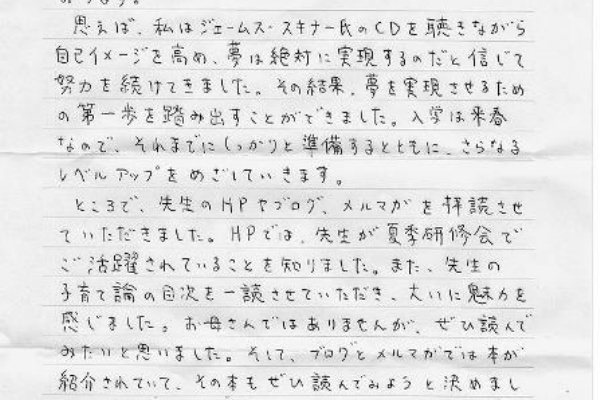 思えば、私はジェームス・スキナー氏のCDを聴きながら
自己イメージを高め、夢は絶対に実現するのだと信じて
努力を続けてきました。その結果、夢を実現させるため
の第一歩を踏み出すことができました。入学は来春
なので、それまでにしっかりと準備するとともに、さらなる
レベルアップをめざしていきます。
ところで、先生のHPやブログ、メルマガを拝読させ
ていただきました。HPでは、先生が夏季研修会で
ご活躍されていることを知りました。また、先生の
子育て論の目次を一読させていただき、大いに魅力を
感じました。お母さんではありませんが、ぜひ読んで
みたいと思いました。そして、ブログとメルマガでは本が
紹介されていて、その本もぜひ読んでみようと決めまし